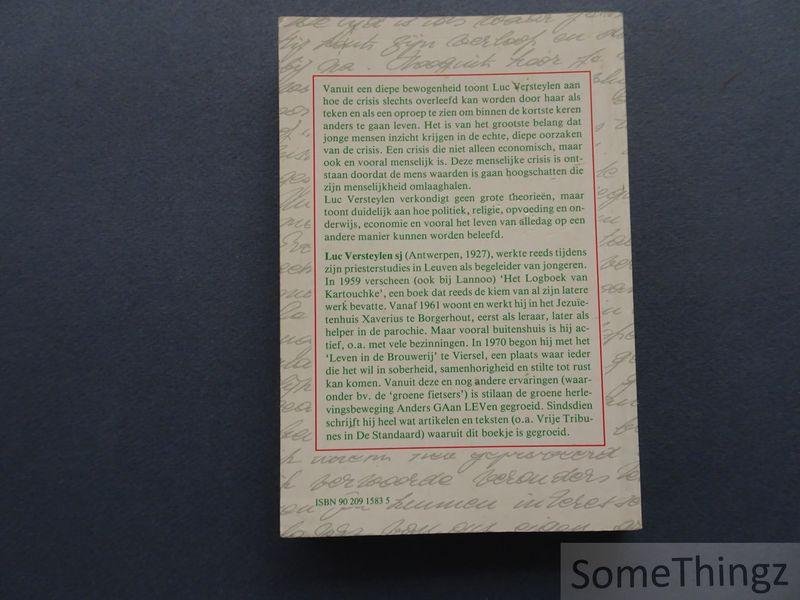 Vanuit een diepe bewogenheid toont Luc Versteylen aan
hoe de crisis slechts overleefd kan worden door haar als
teken en als een oproep te zien om binnen de kortste keren
anders te gaan leven. Het is van het grootste belang dat
jonge mensen inzicht krijgen in de echte, diepe oorzaken
van de crisis. Een crisis die niet alleen economisch, maar
ook en vooral menselijk is. Deze menselijke crisis is ont-
staan doordat de mens waarden is gaan hoogschatten die
zijn menselijkheid omlaaghalen.
Luc Versteylen verkondigt geen grote theorieën, maar
toont duidelijk aan hoe politiek, religie, opvoeding en on-
derwijs, economie en vooral het leven van alledag op een
andere manier kunnen worden beleefd.
Luc Versteylen sj (Antwerpen, 1927), werkte reeds tijdens
zijn priesterstudies in Leuven als begeleider van jongeren.
In 1959 verscheen (ook bij Lannoo) ‘Het Logboek van
Kartouchke’, een boek dat reeds de kiem van al zijn latere
werk bevatte. Vanaf 1961 woont en werkt hij in het Jezuïe-
tenhuis Xaverius te Borgerhout, eerst als leraar, later als
helper in de parochie. Maar vooral buitenshuis is hij ac-
tief, o.a. met vele bezinningen. In 1970 begon hij met het
‘Leven in de Brouwerij’ te Viersel, een plaats waar ieder
die het wil in soberheid, samenhorigheid en stilte tot rust
kan komen. Vanuit deze en nog andere ervaringen (waar-
onder bv. de ‘groene fietsers’) is stilaan de groene herle-
vingsbeweging Anders GAan LEVen gegroeid. Sindsdien
schrijft hij heel wat artikelen en teksten (o.a. Vrije Tribu-
nes in De Standaard) waaruit dit boekje is gegroeid.
ISBN 90 209 1583 5
SomeThingz